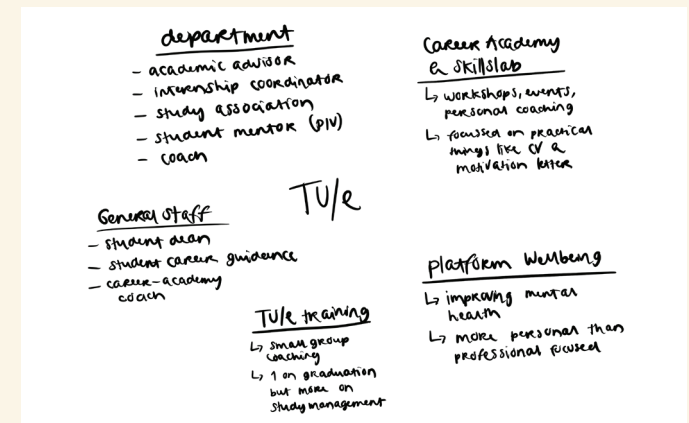 department
- academic advisor
- internship coordinator
- study association
- student mentor (PIV)
- coach
Career Academy
& Skillslab
↳ workshops, events,
personal coaching
↳ focussed on practical
things like CV &
motivation letter
TU/e
General Staff
- student dean
- student career guidance
- career-academy
coach
TU/e training
↳ small group
coaching
↳ 1 on graduation
but more on
study management
platform Wellbeing
↳ improving mental
health
↳ more personal than
professional focused